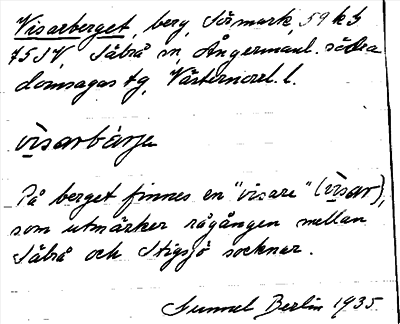 Visarberget, berg, Sörmark, 59 k b
75 SV, Säbrå sn, Ångermanl. södra
domsagas tg, Västernorrl. l.
visarbärje
På berget finnes en "visare" (visar),
som utmärker rågången mellan
Säbrå och Stigsjö socknar.
Gunnel Berlin 1935